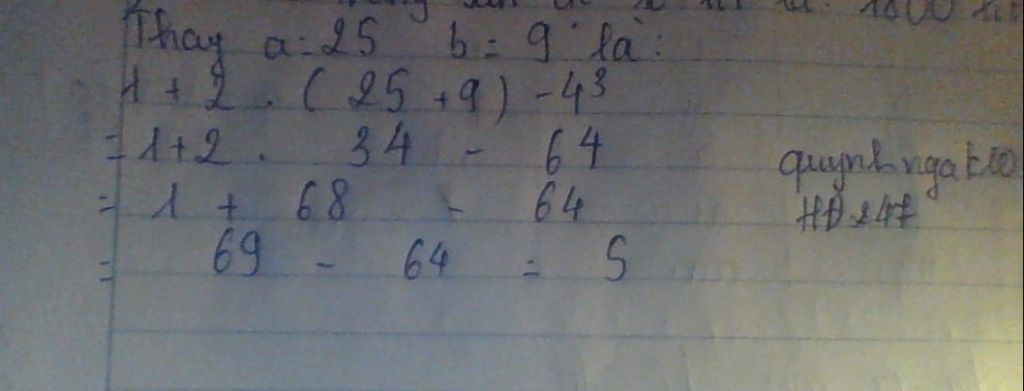 Thay a = 25 b = 9 là :
1 + 2 . ( 25 + 9 ) - 4³
= 1 + 2 . 34 - 64
= 1 + 68 - 64
= 69 - 64 = 5
quynhngak10
HĐ247